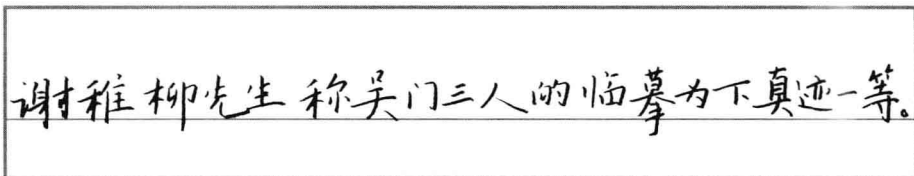 谢稚柳先生称吴门三人的临摹为下真迹一等。